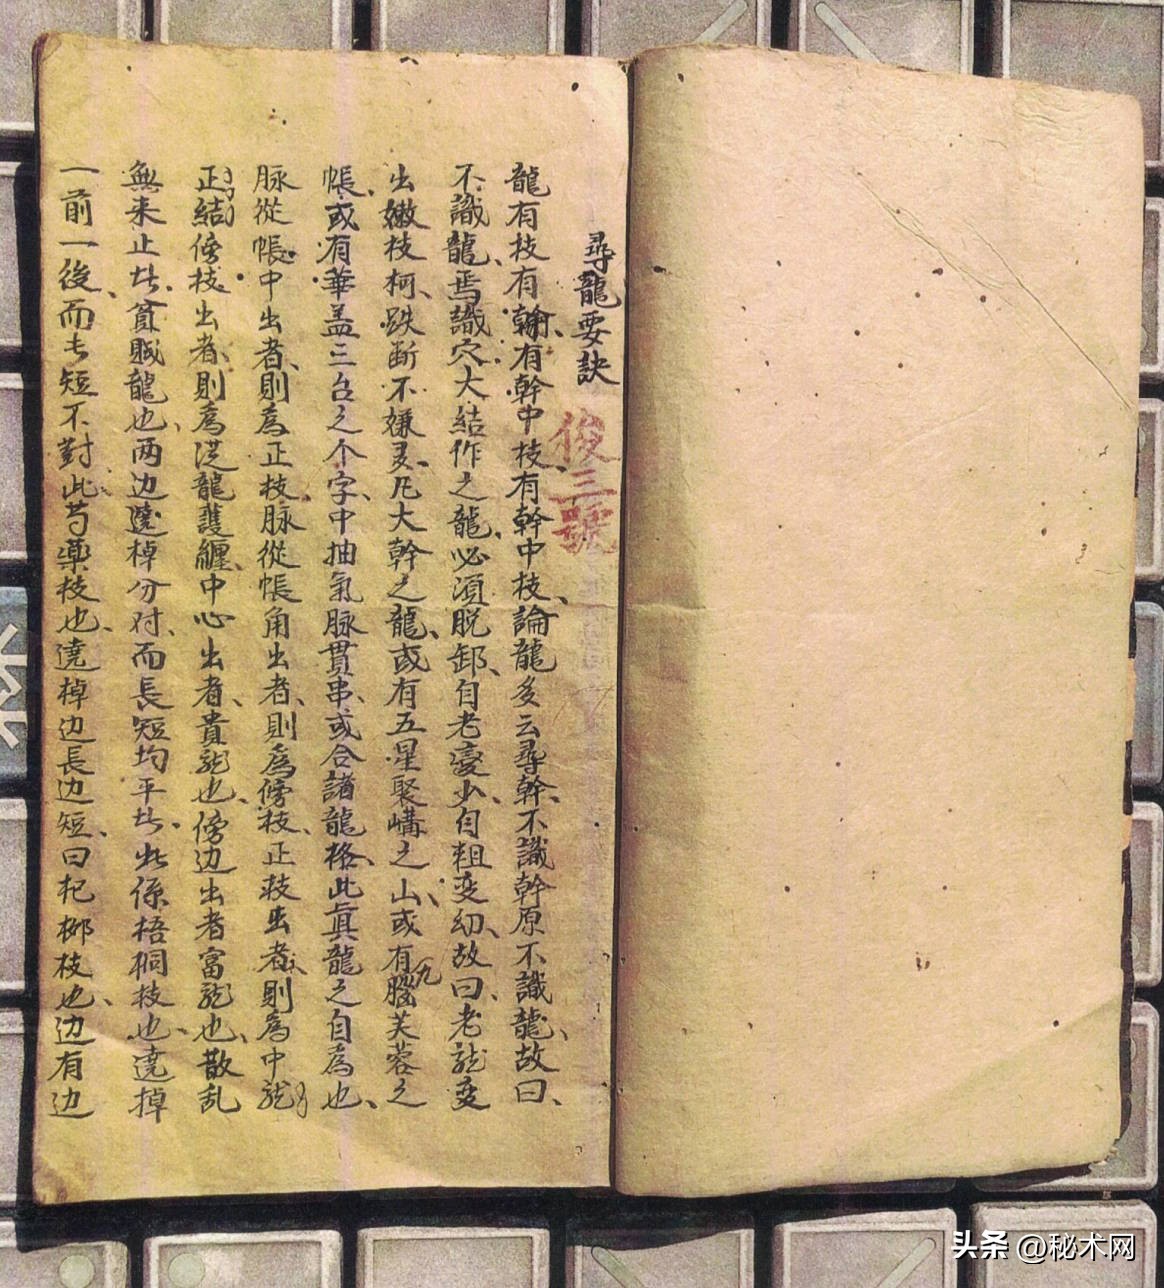 尋龍要訣
俊三號
龍有枝有幹、有幹中枝、有幹中枝、論龍多云尋幹、不識幹原不識龍、故曰、
不識龍、焉識穴大結作之龍、必須脫卸、自老憂少、自粗变幼、故曰、老龙变
出嫩枝柯、跌断不嫌多、凡大幹之龍、或有五星聚構之山、或有九腦芙蓉之
帳、或有華盖三台之个字、中抽氣脉貫串、或合諸龍格、此真龍之自為也、
脉從帳中出者、則為正枝、脉從帳角出者、則為傍枝、正枝出者、則為中龙
正結傍枝出者、則為從龍護纏、中心出者、貴龙也、傍边出者富龙也、散乱
無来止此、貧賊龍也、两边遶棹分对、而長短均平此、此係梧桐枝也、遶棹
一前一後、而長短不對此芍藥枝也、遶棹边長边短、曰杞柳枝也、边有边
头条 @秘术网